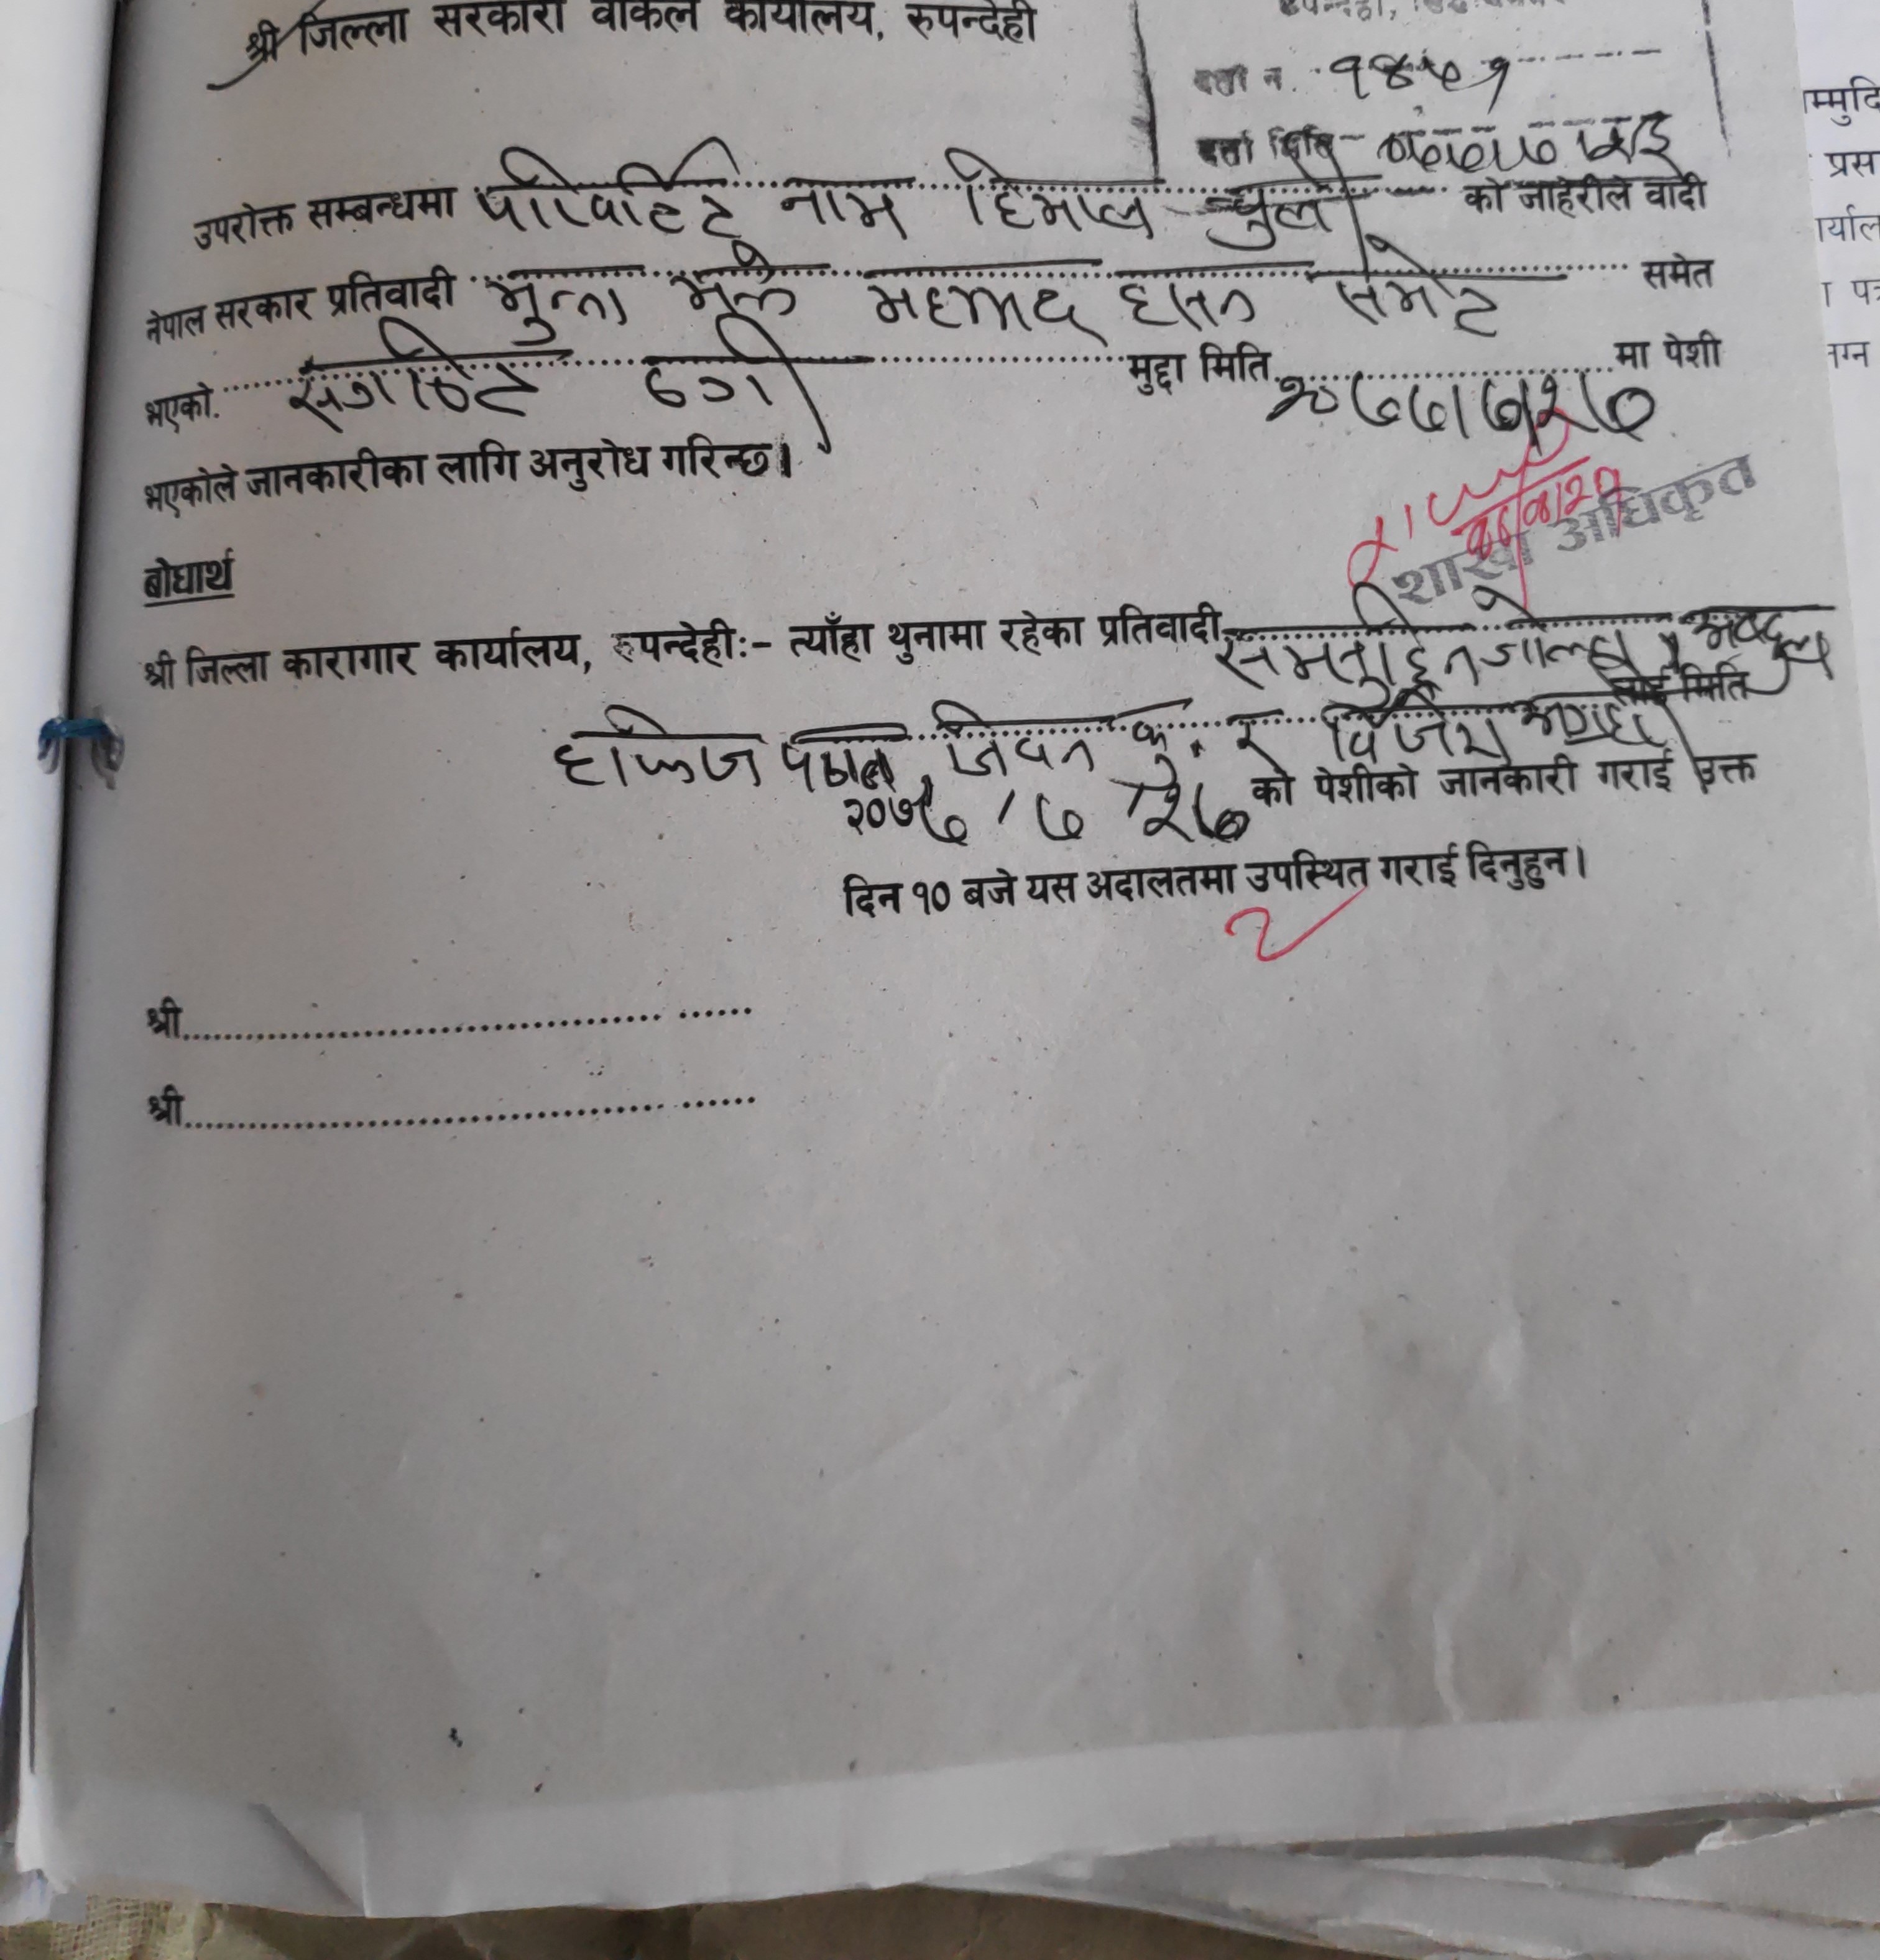 श्री जिल्ला सरकारी वकिल कार्यालय, रुपन्देही
दर्ता नं. १४५१
दर्ता मिति
उपरोक्त सम्बन्धमा परिवर्तित नाम हिमाल चुली को जाहेरीले वादी
नेपाल सरकार प्रतिवादी मुन्ना भन्ने महमद हसन समेत समेत
भएको संगठित ठगी मुद्दा मिति २०७७।७।२७ मा पेशी
भएकोले जानकारीका लागि अनुरोध गरिन्छ।
शाखा अधिकृत
बोधार्थ
श्री जिल्ला कारागार कार्यालय, रुपन्देहीः- त्याँहा थुनामा रहेका प्रतिवादी अब्दुल
हाफिज पठान, जिवन विजय लाई मिति
२०७७/७/२७ को पेशीको जानकारी गराई उक्त
दिन १० बजे यस अदालतमा उपस्थित गराई दिनुहुन।
श्री
श्री
म्मुदि
प्रस
र्याल
पत्र
नग्न